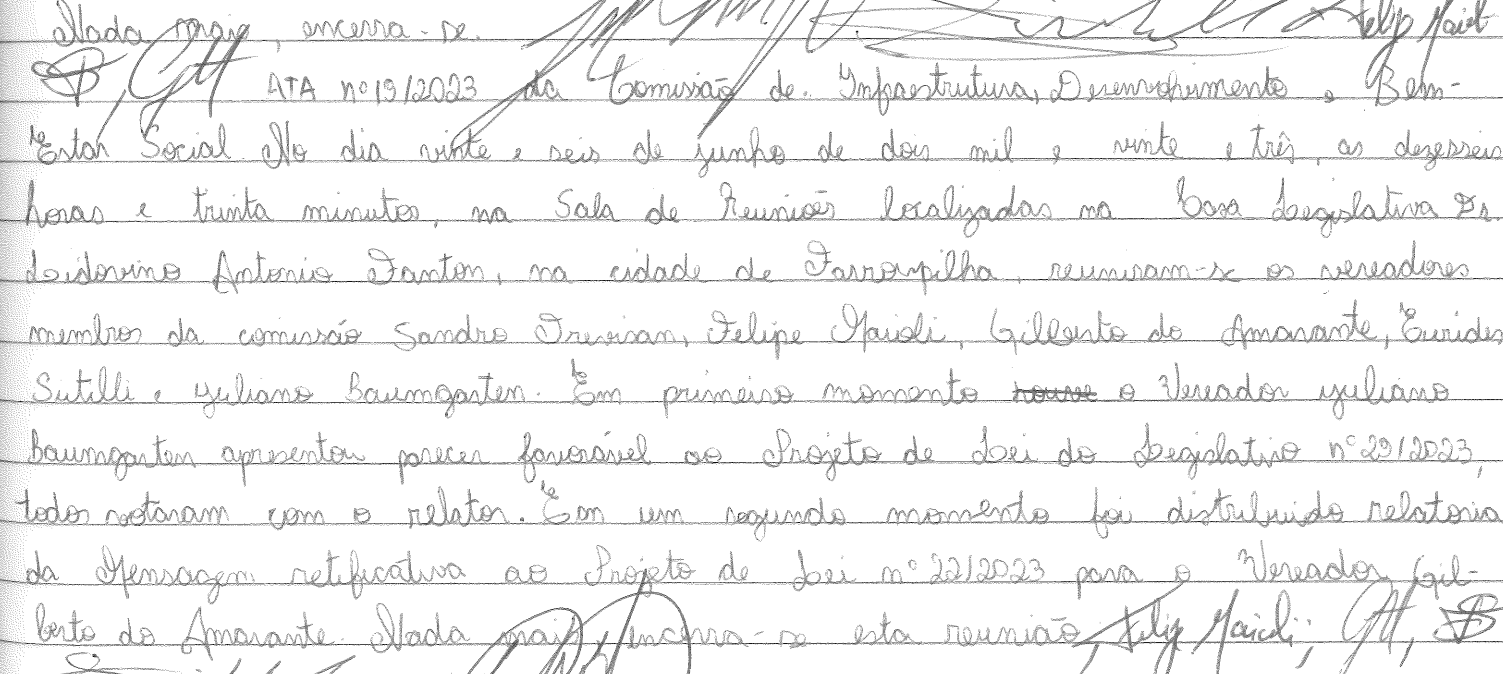 Nada mais, encerra-se. Felip Maioli
ATA nº 19/2023 da Comissão de Infraestrutura, Desenvolvimento e Bem-
Estar Social No dia vinte e seis de junho de dois mil e vinte e três, as dezesseis
horas e trinta minutos, na Sala de Reuniões localizadas na Casa Legislativa Dr.
Lidovino Antonio Fanton, na cidade de Farroupilha, reuniram-se os vereadores
membros da comissão Sandro Trevisan, Felipe Maioli, Gilberto do Amarante, Eurides
Sutilli e Juliano Baumgarten. Em primeiro momento houve o Vereador Juliano
Baumgarten apresentou parecer favorável ao Projeto de Lei do Legislativo nº 29/2023,
todos votaram com o relator. Em um segundo momento foi distribuido relatoria
da Mensagem retificativa ao Projeto de Lei nº 22/2023 para o Vereador Gil-
berto do Amarante. Nada mais, encerra-se esta reunião, Felip Maioli;